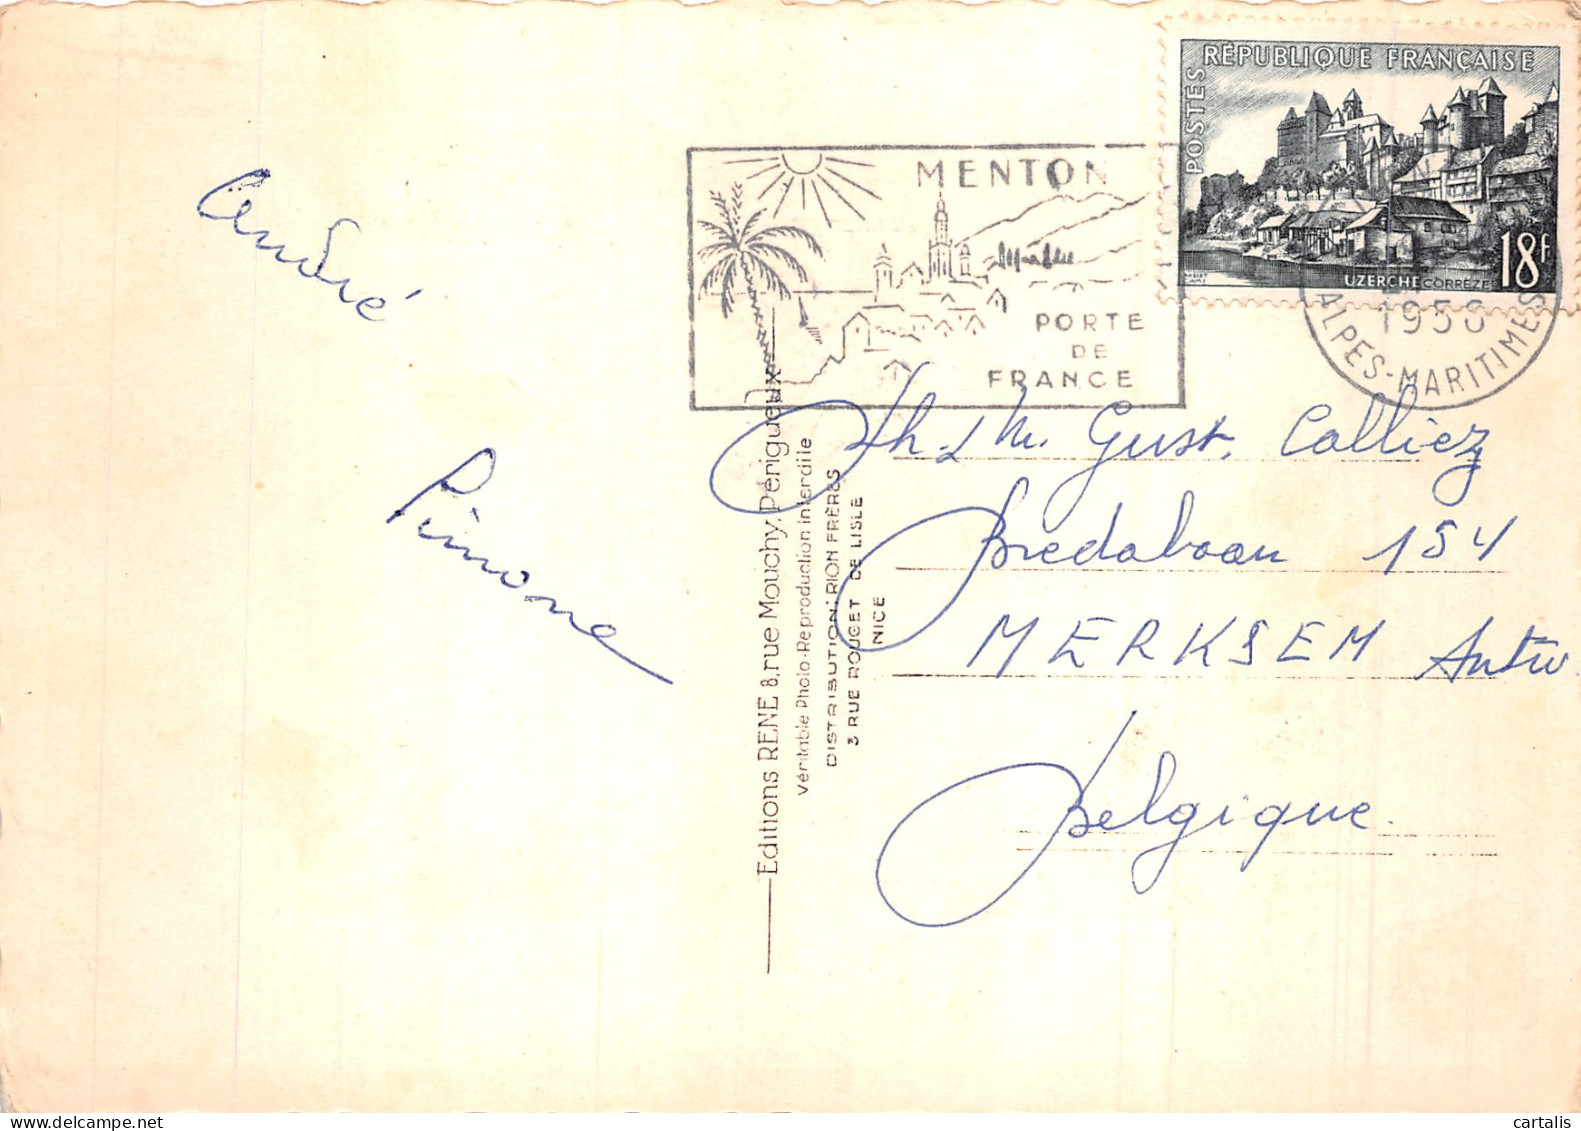 RÉPUBLIQUE FRANÇAISE
POSTES
UZERCHE CORRÈZE
18f
MENTON
PORTE
DE
FRANCE
1956
ALPES-MARITIMES
André
Simone
Editions RENÉ 8, rue Mouchy, Périgueux
Véritable Photo-Reproduction interdite
DISTRIBUTION: RION FRÈRES
3 RUE ROUGET DE LISLE
NICE
M. Gust. Colliez
Bredabaan 154
MERKSEM Antw
Belgique.
cartalis